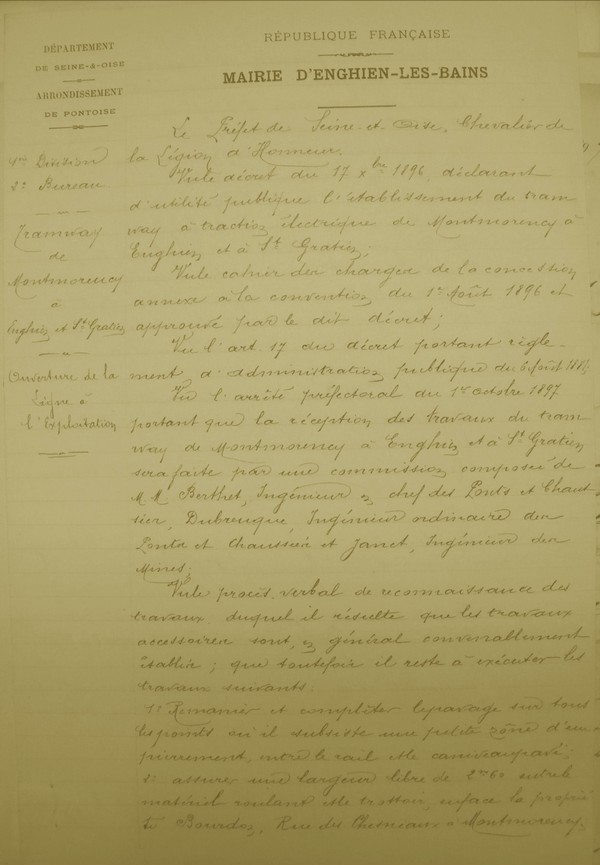 RÉPUBLIQUE FRANÇAISE
MAIRIE D'ENGHIEN-LES-BAINS
DÉPARTEMENT
DE SEINE-&-OISE
ARRONDISSEMENT
DE PONTOISE
4me Division
2e Bureau
Tramway
de
Montmorency
à
Enghien et St Gratien
Ouverture de la
Ligne à
l'Exploitation
Le Préfet de Seine-et-Oise, Chevalier de
la Légion d'Honneur.
Vu le décret du 17 xbre 1896, déclarant
d'utilité publique l'établissement du tram
way à traction électrique de Montmorency à
Enghien et à St Gratien;
Vu le cahier des charges de la concession
annexe à la convention du 1er Août 1896 et
approuvé par le dit décret;
Vu l'art. 17 du décret portant règle-
ment d'administration publique du 6 Août 1881;
Vu l'arrêté préfectoral du 1er octobre 1897
portant que la réception des travaux du tram
way de Montmorency à Enghien et à St Gratien
sera faite par une commission composée de
M.M. Berthet, Ingénieur en chef des Ponts et Chaus
sées, Ingénieur ordinaire des
Ponts et Chaussées et Janet, Ingénieur des
Mines;
Vu le procès-verbal de reconnaissance des
travaux duquel il résulte que les travaux
accessoires sont, en général convenablement
établis; que toutefois il reste à exécuter les
travaux suivants.
1° Remanier et compléter le pavage sur tous
les points où il subsiste une petite zône d'em
pierrement entre le rail et le caniveau pavé;
2° assurer une largeur libre de 2m60 entre le
matériel roulant et le trottoir, en face la proprié
té Bourdon, Rue des Chesneaux à Montmorency,